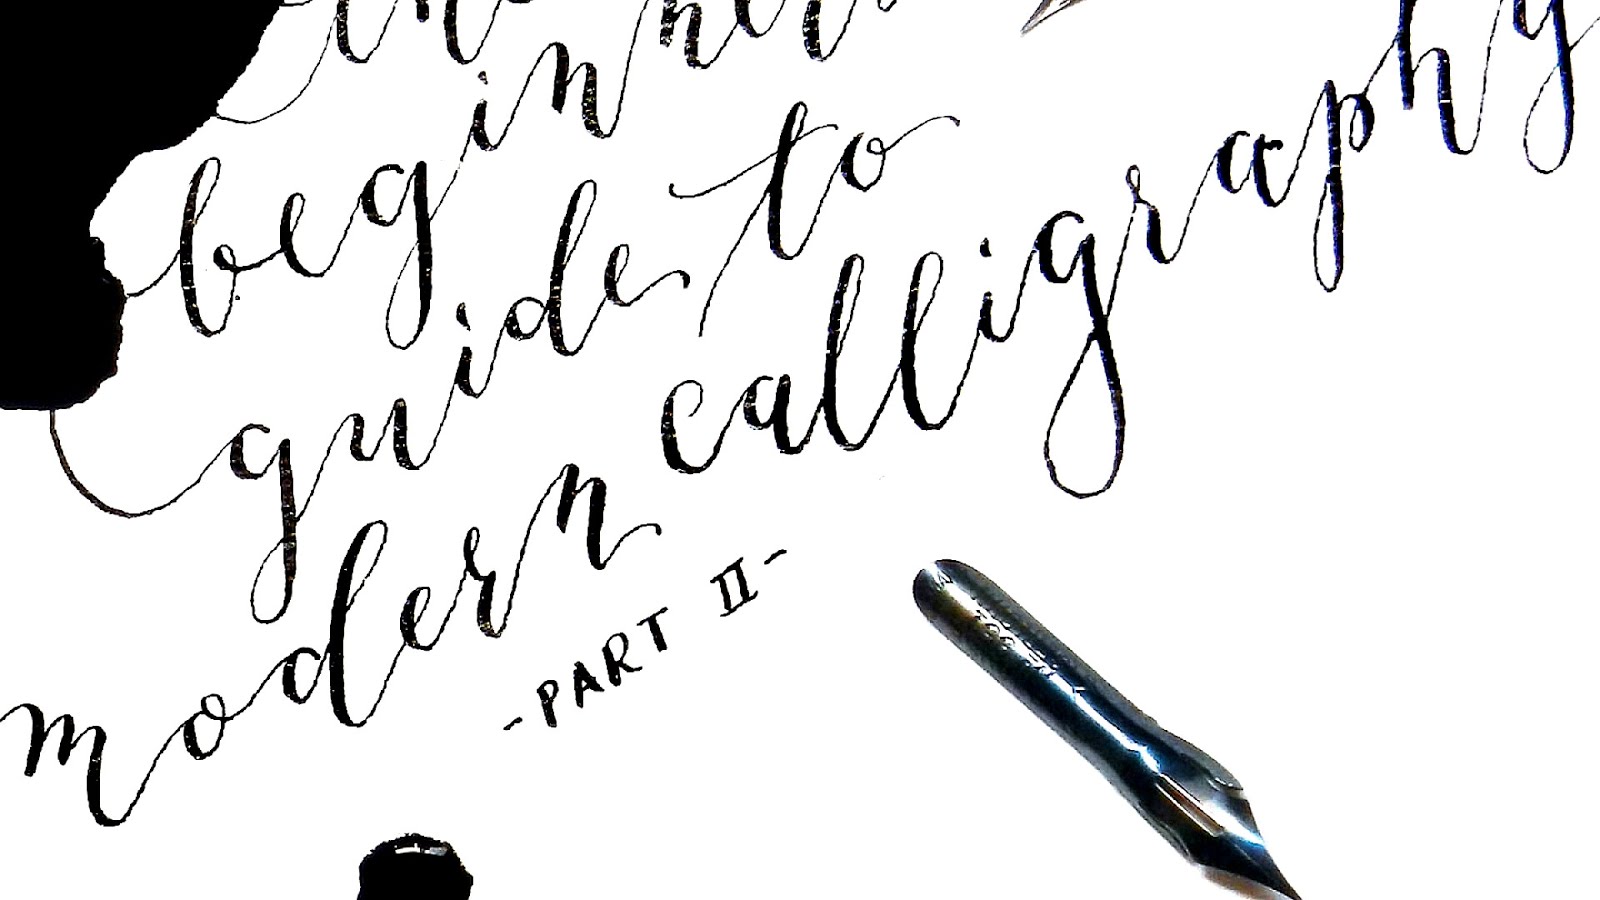 the
beginner
guide to
modern calligraphy
- PART II -